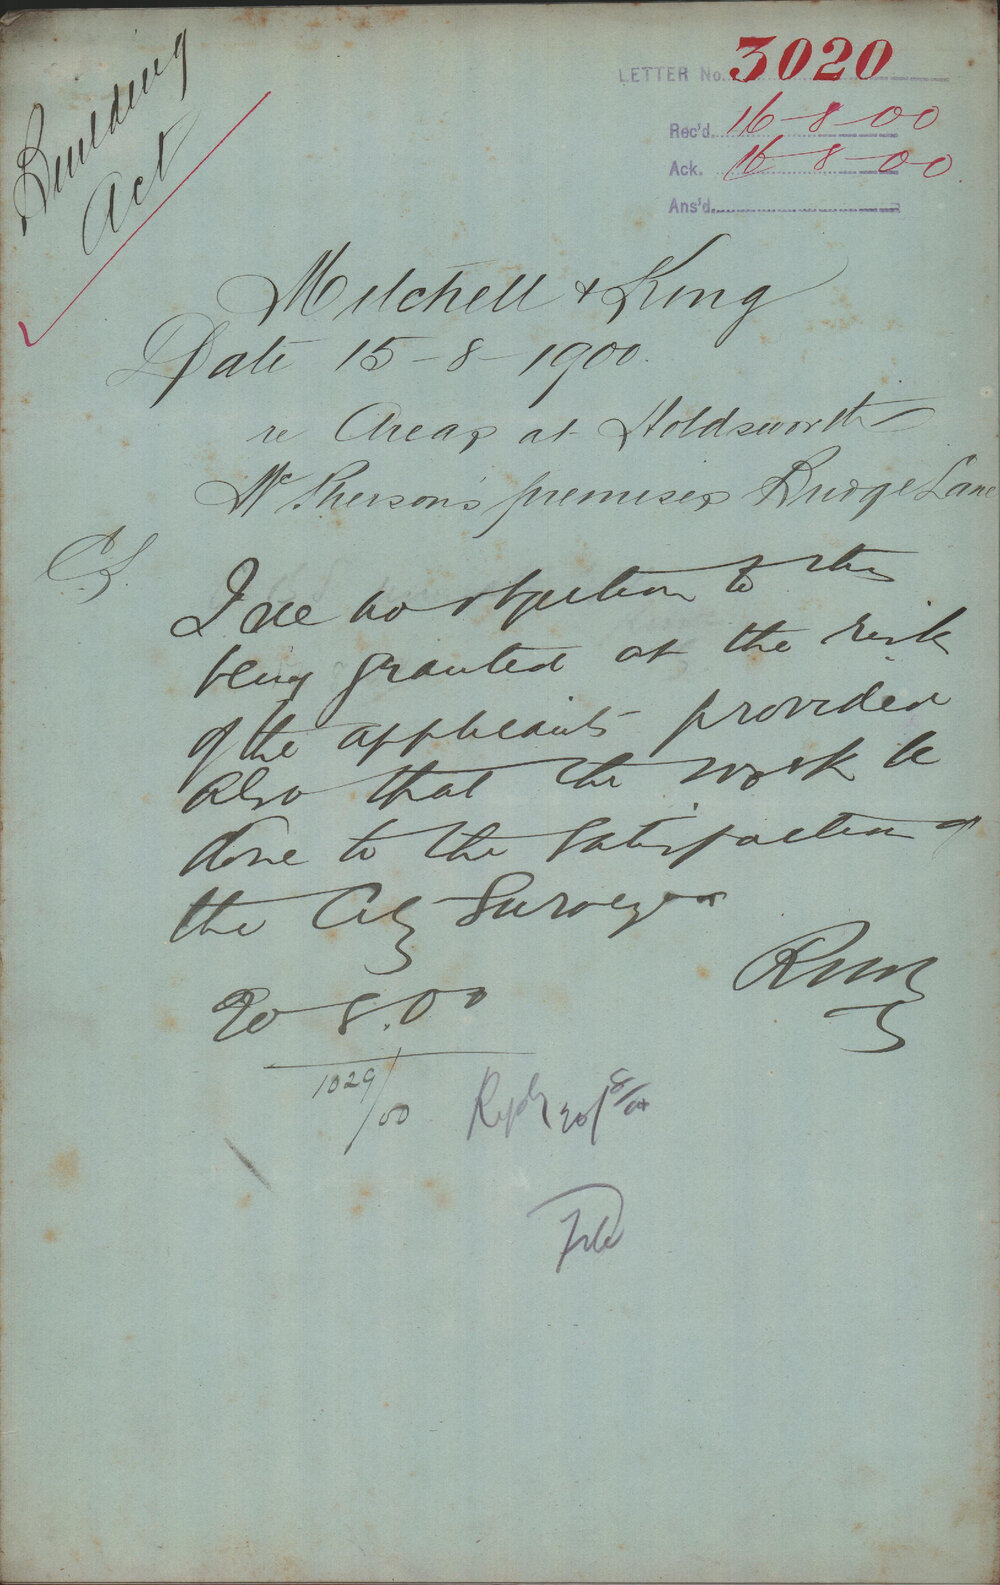 Building
Act
LETTER No. 3020
Rec'd. 16-8-00
Ack. 16-8-00
Ans'd.
Mitchell & King
Date 15-8-1900.
re Areas at Holdsworth
McPherson's premises Bridge Lane
C.S.
I see no objection to this
being granted at the risk
of the applicants provided
also that the work be
done to the satisfaction of
the City Surveyor
20-8.00
1029/00
20/8/00
File